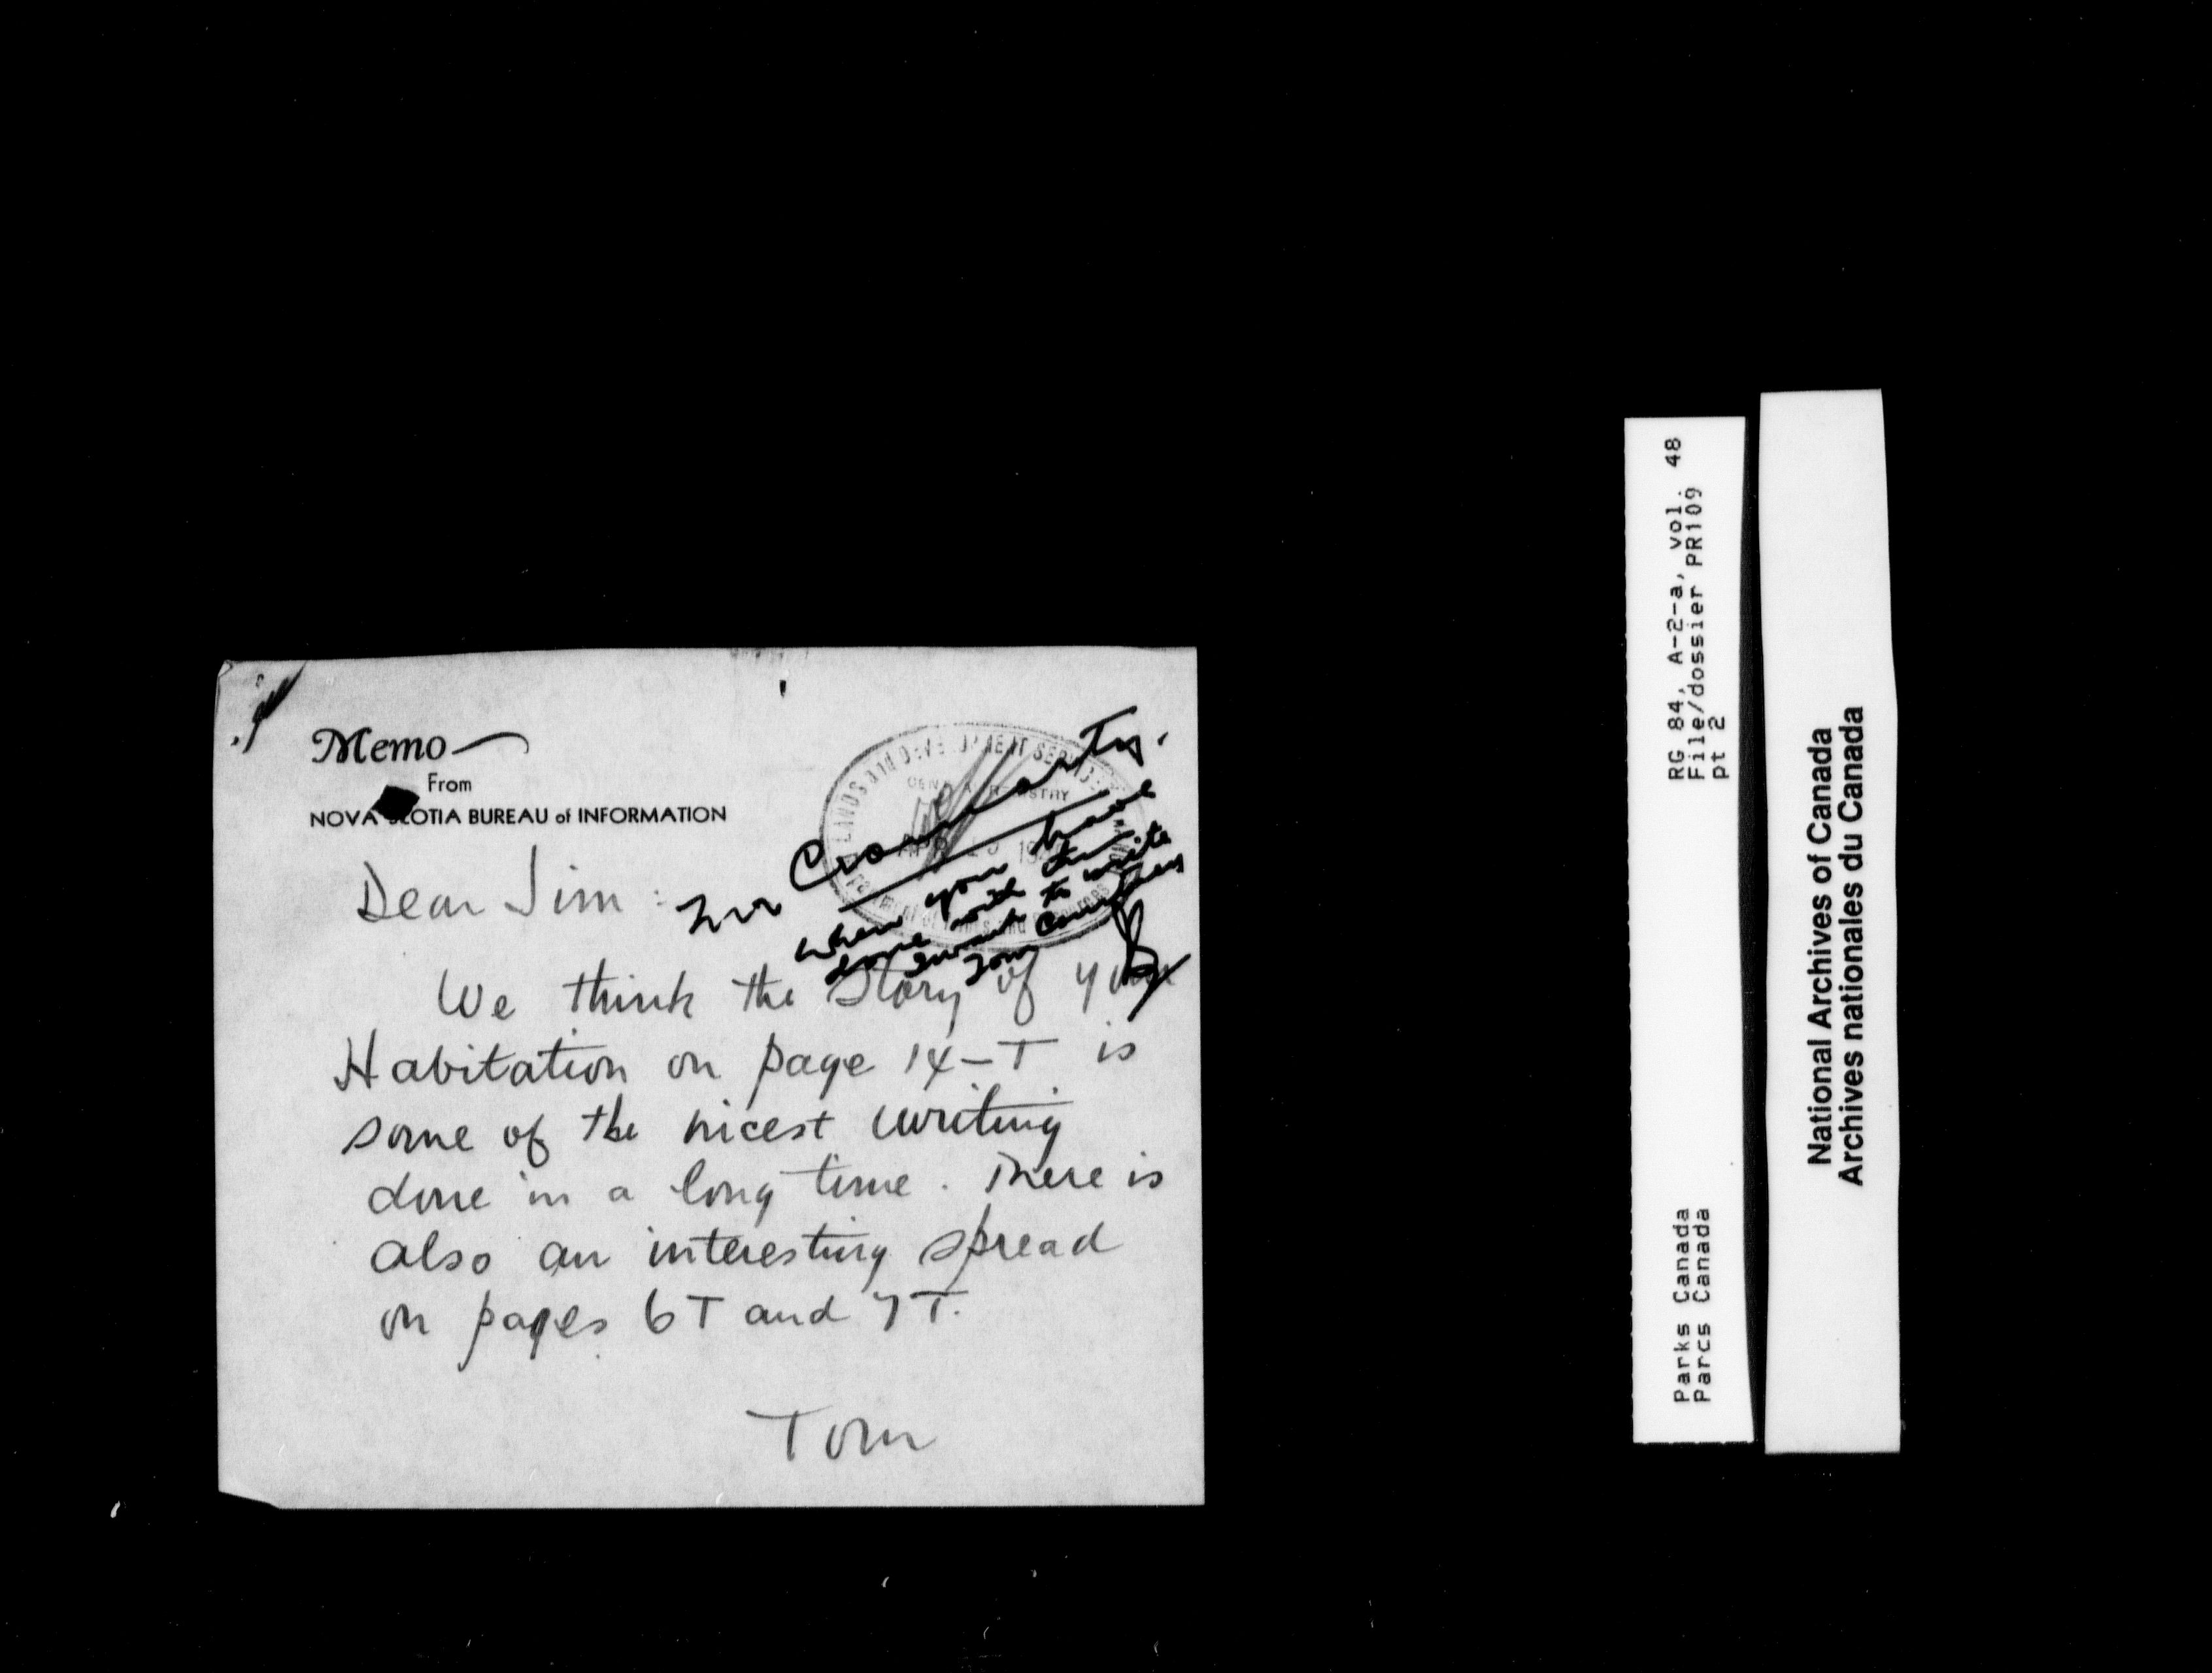 Memo
From
NOVA SCOTIA BUREAU of INFORMATION
LANDS AND DEVELOPMENT SERVICES
CENTRAL REGISTRY
Mr Cromarty.
When you have
done with this
I want to write
Tom Courtney
Dear Jim:
We think the story of your
Habitation on page 14-T is
some of the nicest writing
done in a long time. There is
also an interesting spread
on pages 6T and 7T.
Tom
RG 84, A-2-a, vol. 48
File/dossier PR109
pt 2
Parks Canada
Parcs Canada
National Archives of Canada
Archives nationales du Canada